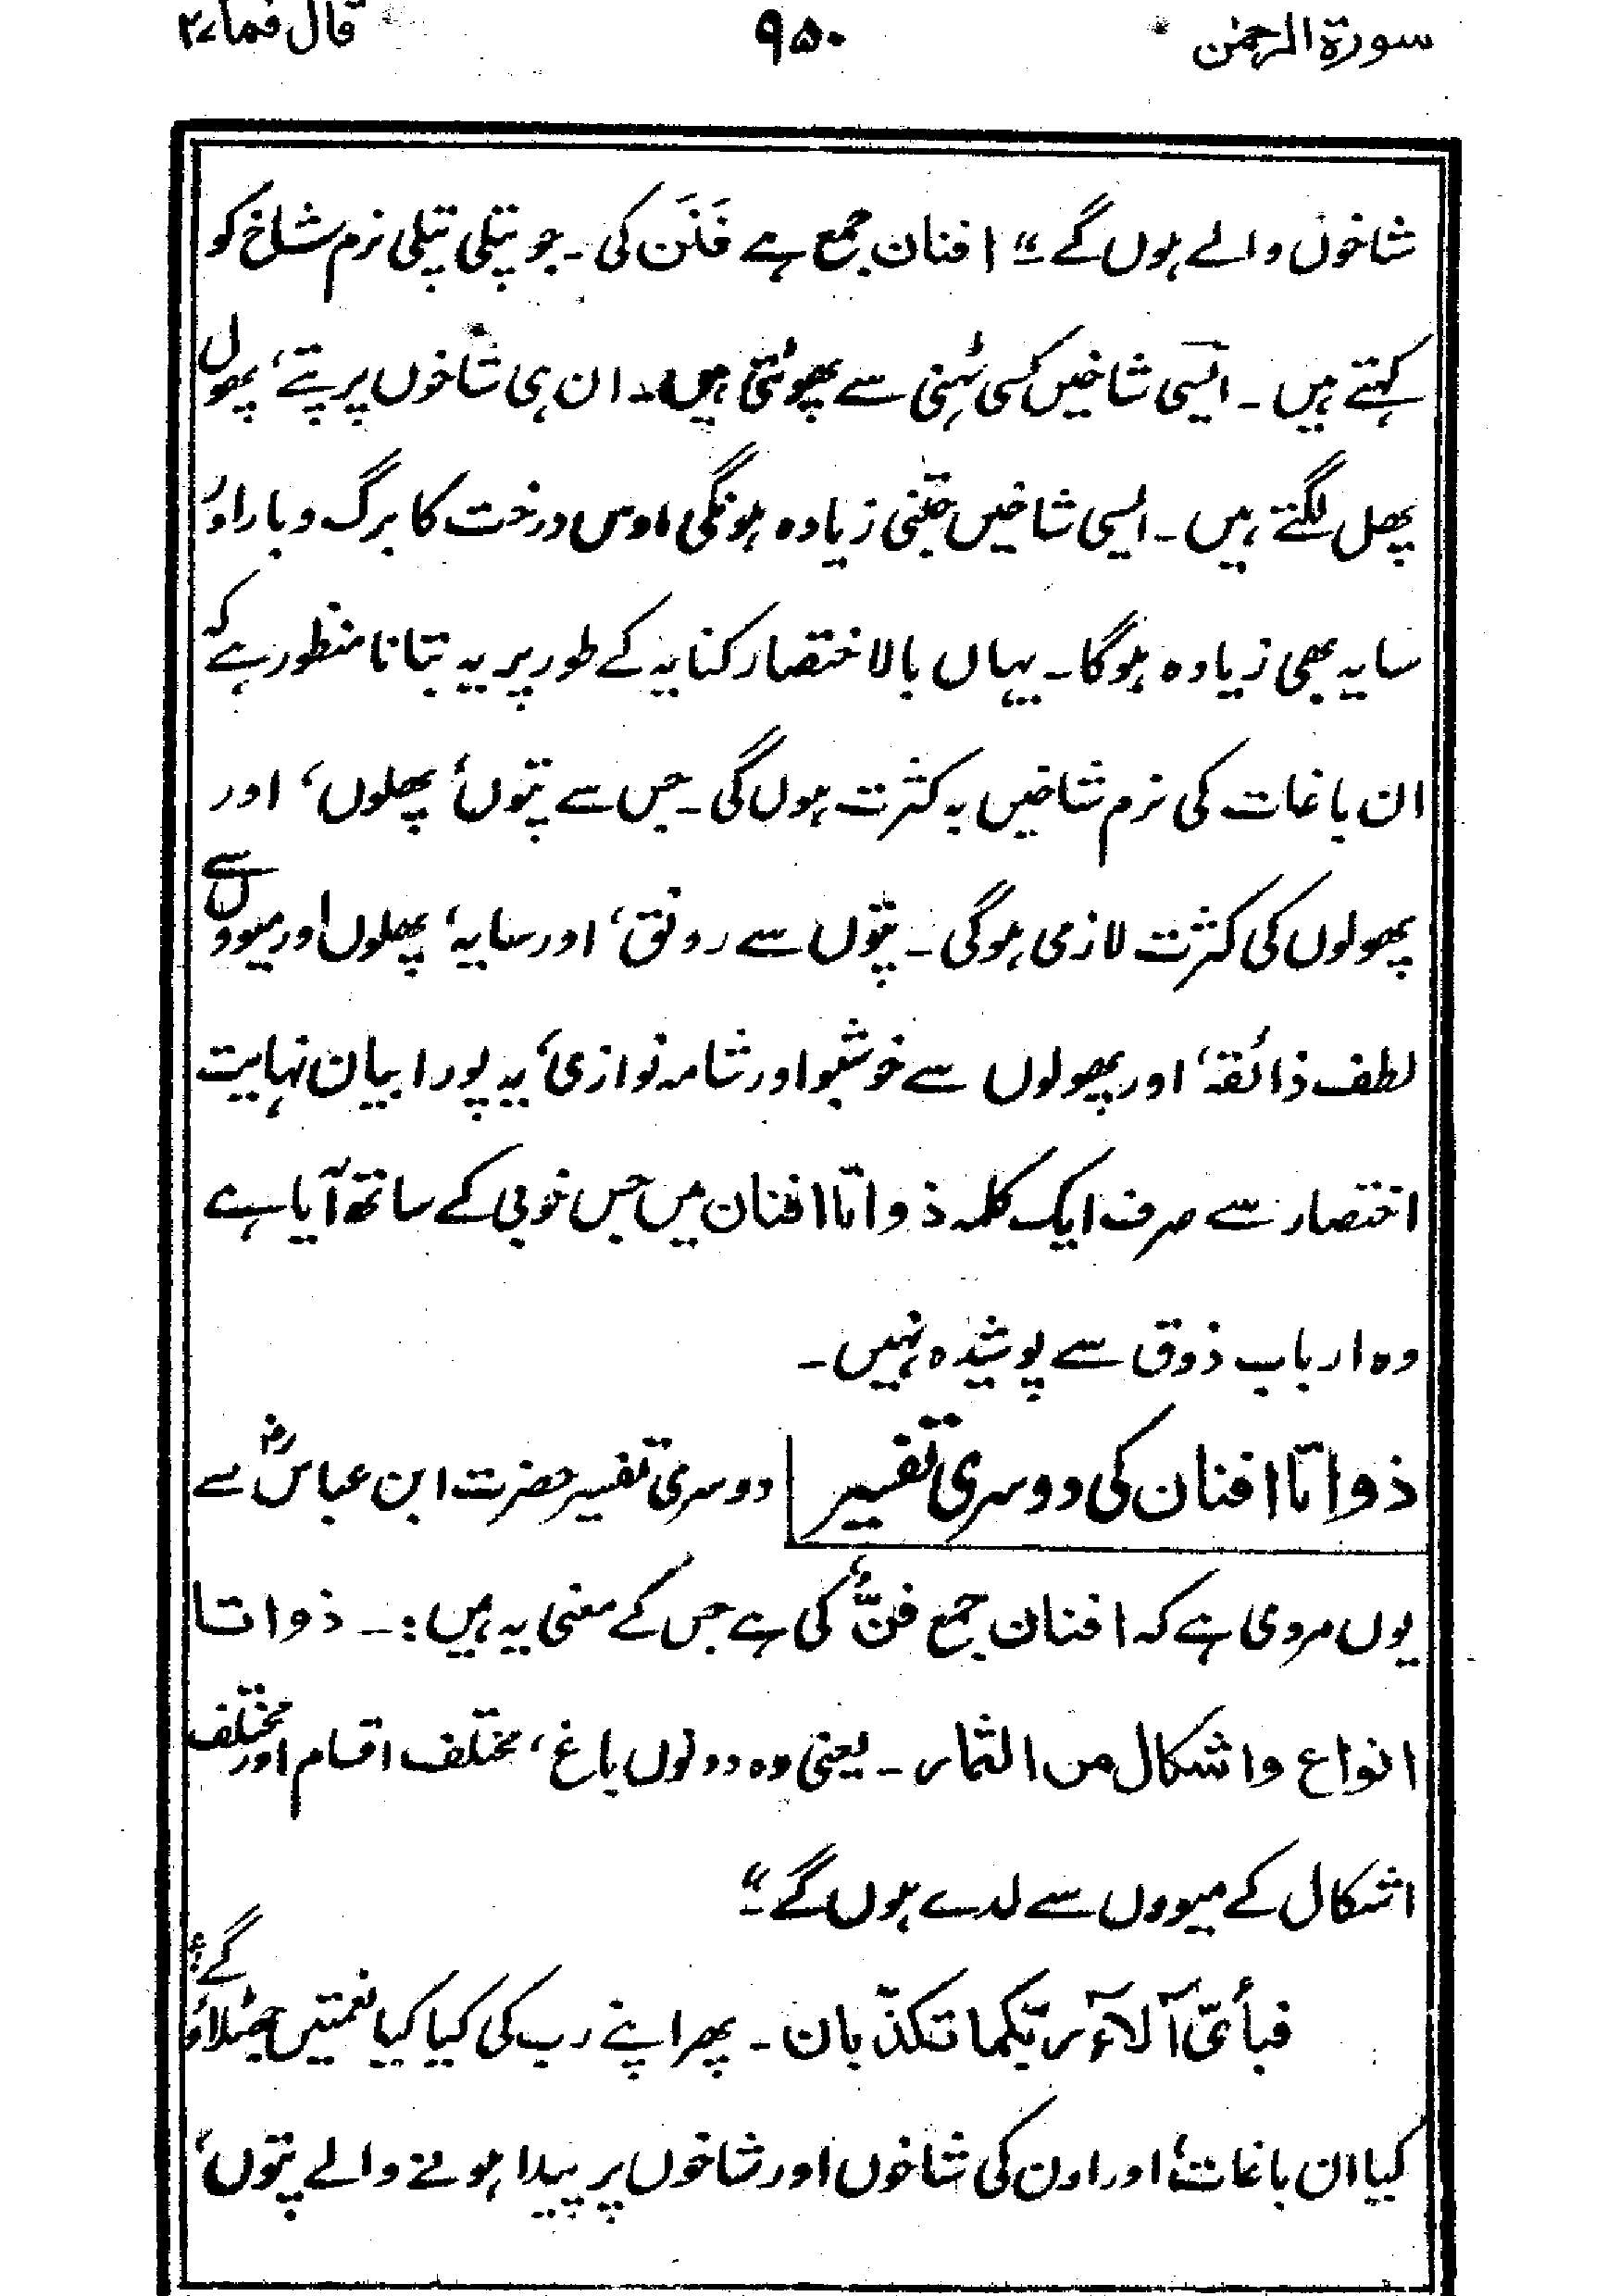 سورۃ الرحمٰن ۹۵۰ قال فما ۲۷
شاخوں والے ہوں گے ‘‘ افنان جمع ہے فَنَن کی ۔ جو پتلی پتلی نرم شاخ کو
کہتے ہیں ۔ ایسی شاخیں کسی ٹہنی سے پھوٹتی ہیں ۔ ان ہی شاخوں پر پتے ، پھول
پھل لگتے ہیں ۔ ایسی شاخیں جتنی زیادہ ہونگی اوس درخت کا برگ و بار اور
سایہ بھی زیادہ ہوگا ۔ یہاں بالاختصار کنایہ کے طور پر یہ بتانا منظور ہے کہ
ان باغات کی نرم شاخیں بہ کثرت ہوں گی ۔ جس سے پتوں ، پھلوں ، اور
پھولوں کی کثرت لازمی ہوگی ۔ پتوں سے رونق ، اور سایہ ، پھلوں اور میووں سے
لطف ذائقہ ، اور پھولوں سے خوشبو اور شامہ نوازی ، یہ پورا بیان نہایت
اختصار سے صرف ایک کلمہ ذواتا افنان میں جس خوبی کے ساتھ آیا ہے
وہ ارباب ذوق سے پوشیدہ نہیں ۔
ذواتا افنان کی دوسری تفسیر دوسری تفسیر حضرت ابن عباسؓ سے
یوں مروی ہے کہ افنان جمع فنّ کی ہے جس کے معنی یہ ہیں :۔ ذواتا
انواع واشکال من الثمار ۔ یعنی وہ دونوں باغ ، مختلف اقسام اور مختلف
اشکال کے میووں سے لدے ہوں گے ‘‘
فبأیّ آلآء ربّکما تکذّبان ۔ پھر اپنے رب کی کیا کیا نعمتیں جھٹلاؤ گے ؟
کیا ان باغات ، اور اون کی شاخوں اور شاخوں پر پیدا ہونے والے پتوں ،